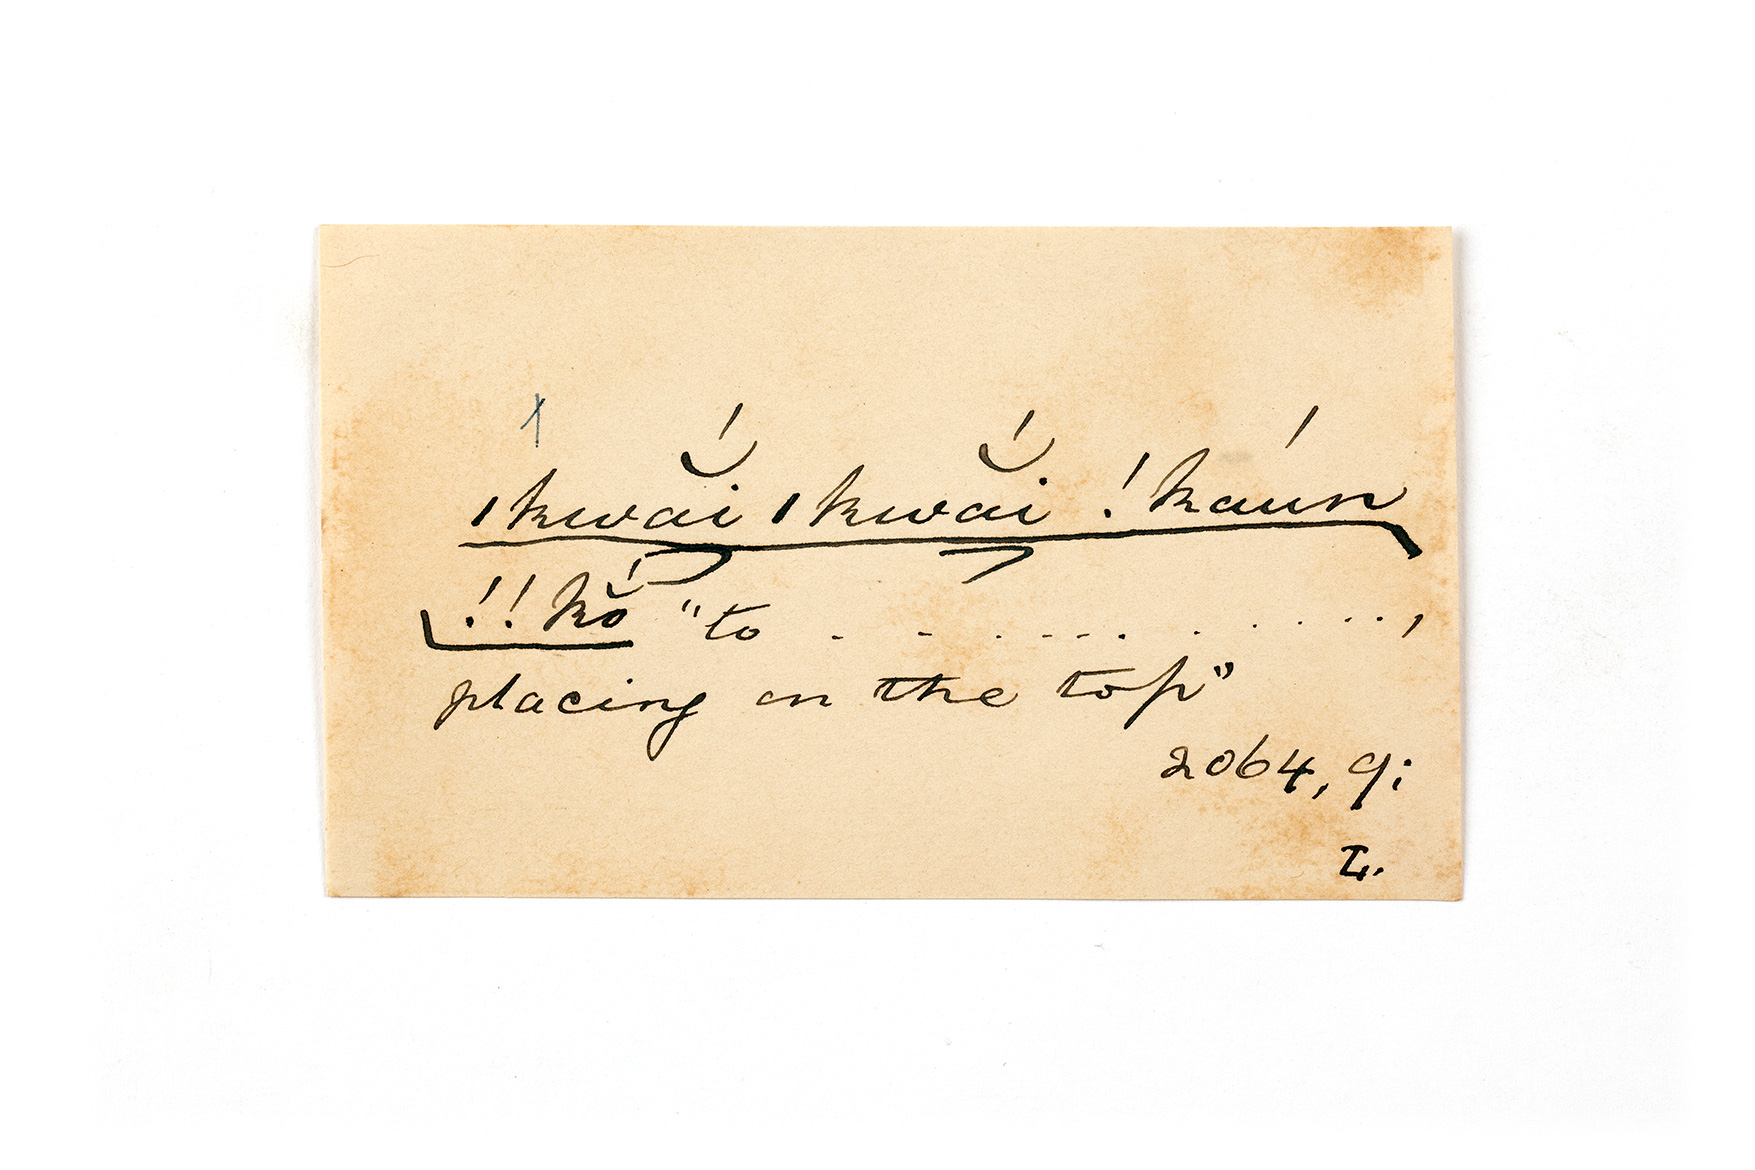 1
ıkwā̆́i ıkwā̆́i !kaún
!!kŏ́ "to . . . . . . . . . . . . ,
placing on the top"
2064, 9;
L.